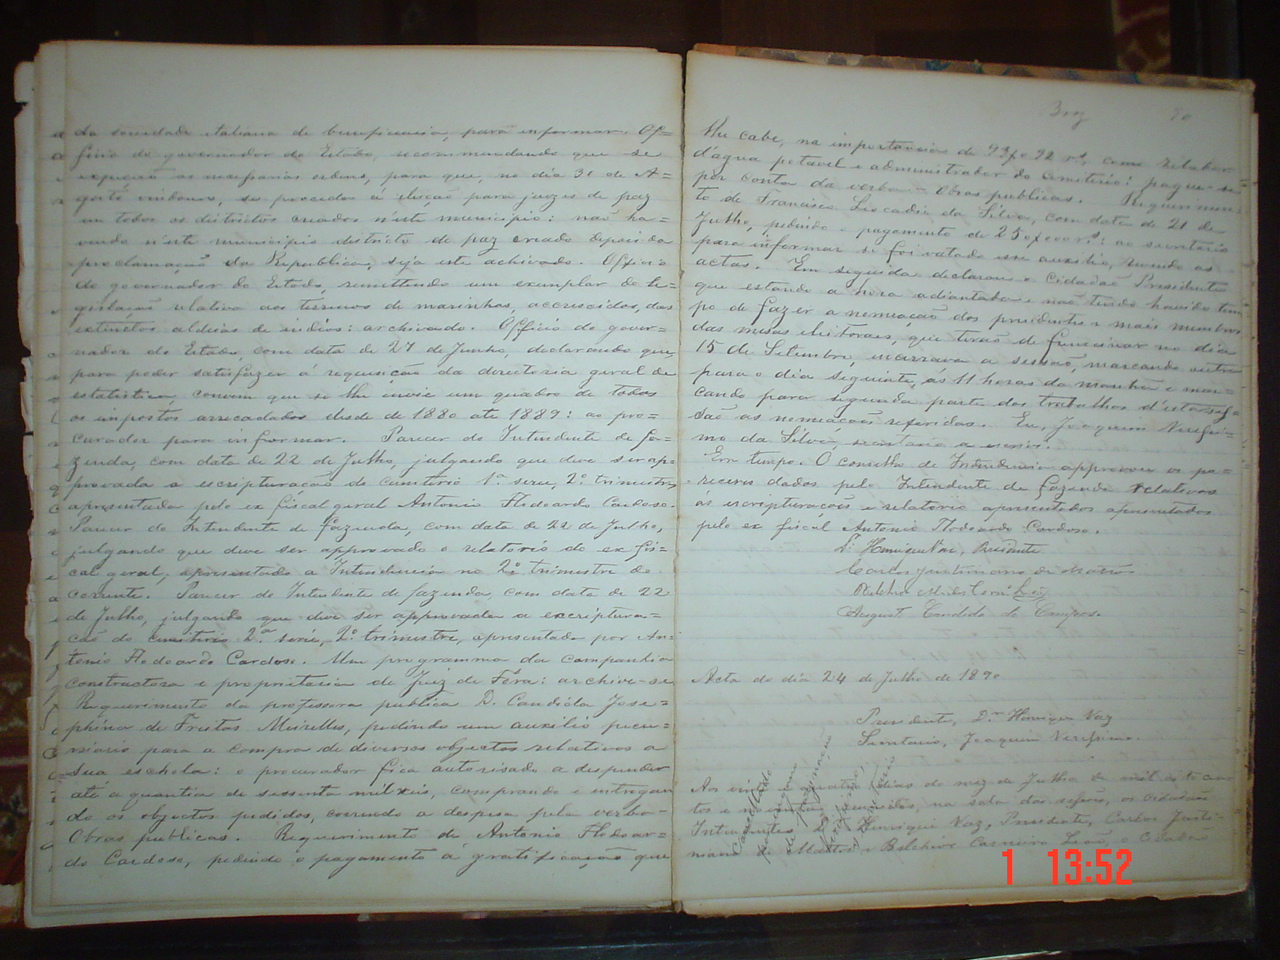 da sociedade italiana de beneficencia, para informar. Of=
ficio do governador do Estado, recommendando que se
expeção as necessarias ordens, para que, no dia 31 de A=
gosto vindouro, se proceda á eleição para juizes de paz
em todos os districtos creados n'este municipio: não ha=
vendo n'este municipio districto de paz creado depois da
proclamação da Republica, seja este achivado. Officio
do governador do Estado, remettendo um exemplar da le=
gislação relativa aos terrenos de marinhas, accrescidos, das
extinctos aldeias de indios: archivado. Officio do gover=
nador do Estado, com data de 27 de Junho, declarando que,
para poder satisfazer á requisição da directoria geral de
estatistica, convem que se lhe envie um quadro de todos
os impostos arrecadados desde de 1880 até 1889: ao pro=
curador para informar. Parecer do Intendente de fa=
zenda, com data de 22 de Julho, julgando que deve ser ap=
provada a escripturação do cemiterio 1ª serie, 2º trimestre,
apresentada pelo ex fiscal geral Antonio Flodoardo Cardoso.
Parecer do Intendente de fazenda, com data de 22 de Julho,
julgando que deve ser approvado o relatorio do ex fis=
cal geral, apresentado a Intendencia no 2º trimestre do
corrente. Parecer do Intendente de fazenda, com data de 22
de Julho, julgando que deve ser approvada a escriptura=
ção do cemiterio 2ª serie, 2º trimestre, apresentada por An=
tonio Flodoardo Cardoso. Um programma da companhia
constructora e proprietaria de Juiz de Fóra: archive-se
Requerimento da professora publica D. Candida Jose=
phina de Freitas Meirelles, pedindo um auxilio pecu=
niario para a compra de diversos objectos relativos a
sua eschola: o procurador fica autorisado a despender
até a quantia de sessenta mil reis, comprando e entregan
do os objectos pedidos, correndo a despesa pela verba -
Obras publicas. Requerimento de Antonio Flodoar=
do Cardoso, pedindo o pagamento da gratificação que
70
lhe cabe, na importancia de rs, como zelador
d'agua potavel e administrador do cemiterio: pague-se
por conta da verba - Obras publicas. Requerimen
to de Francisco Leocadio da Silva, com data de 21 de
Julho, pedindo o pagamento de 25$000 rs: ao secretario
para informar se foi votado esse auxilio, vendo as
actas. Em seguida declarou o Cidadão Presidente
que estando a hora adiantada e não tendo havido tem
po de fazer a nomeação dos presidentes e mais membros
das mesas eleitoraes, que terão de funccionar no dia
15 de Setembro, encerrava a sessão, marcando outra
para o dia seguinte, ás 11 horas da manhã e mar=
cando para segunda parte dos trabalhos d'esta ses=
são as nomeações referidas. Eu, Joaquim Verissi=
mo da Silva, secretario a escrevi.
Em tempo. O conselho de Intendencia approvou os pa=
receres dados pelo Intendente de fazenda relativos
ás escripturações e relatorio apresentados
pelo ex fiscal Antonio Flodoardo Cardoso.
Dr. Henrique Vaz, Presidente
Carlos Justiniano de Mattos
Belchior
Augusto Candido de Campos.
Acta do dia 24 de Julho de 1890
Presidente, Dr. Henrique Vaz
Secretario, Joaquim Verissimo.
Aos vinte e quatro dias do mez de Julho de mil oitocen
tos e noventa, na sala das sessões, os cidadãos
Intendentes Henrique Vaz, Presidente, Carlos Justi=
niano de Mattos, Belchior Carneiro Leão, o Cidadão
1 13:52